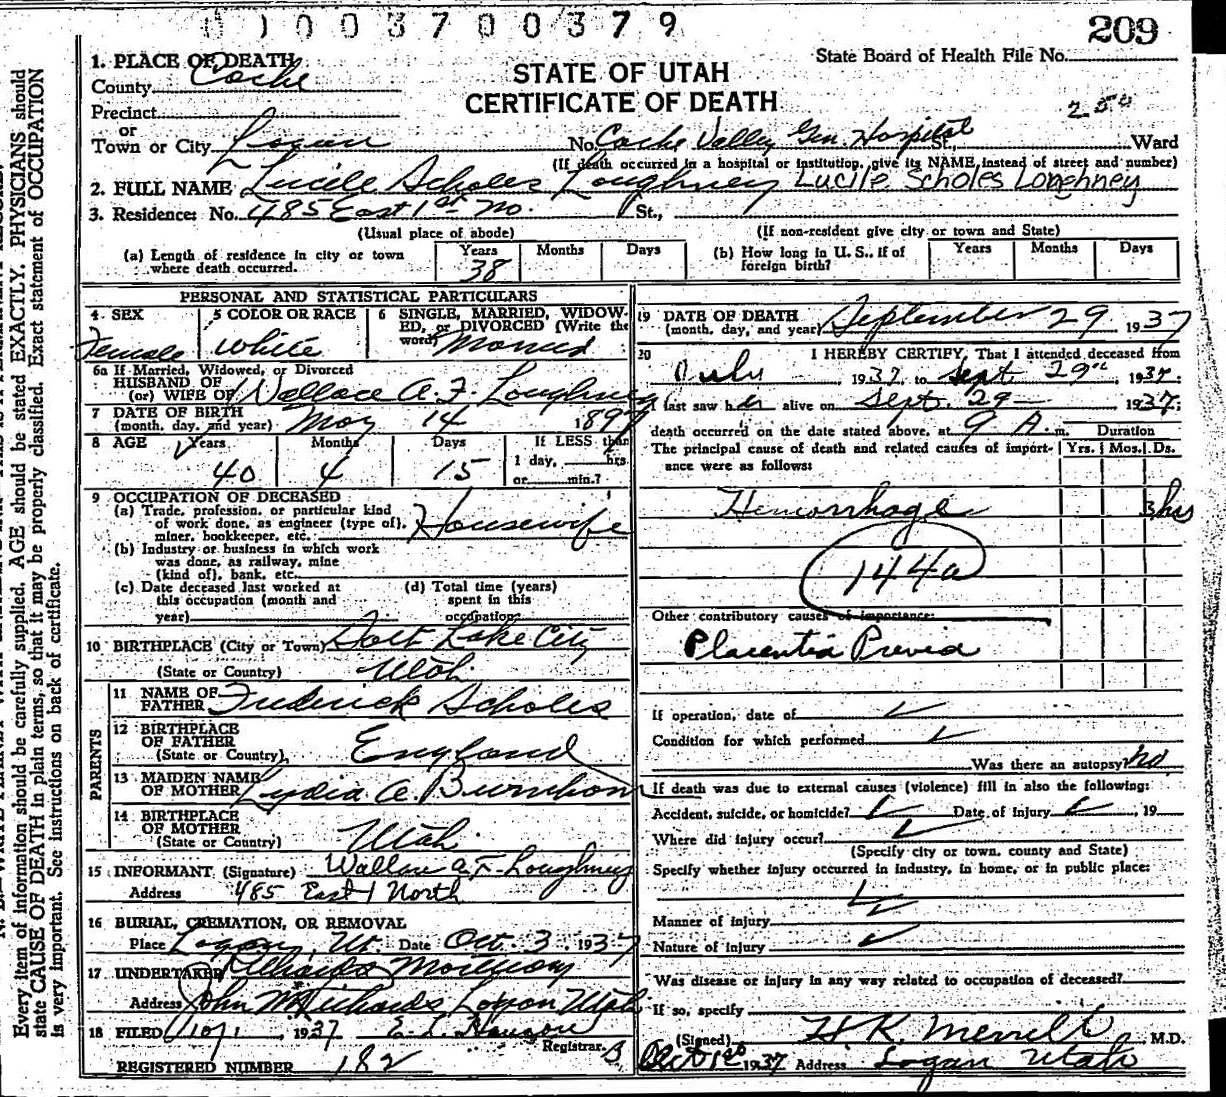 003700379
209
State Board of Health File No.
STATE OF UTAH
CERTIFICATE OF DEATH
250
1. PLACE OF DEATH
County Cache
Precinct
or
Town or City Logan No. Cache Valley Gen. Hospital St., Ward
(If death occurred in a hospital or institution, give its NAME instead of street and number)
2. FULL NAME Lucile Scholes Loughney Lucile Scholes Loughney
3. Residence: No. 485 East 1st No. St.,
(Usual place of abode) (If non-resident give city or town and State)
(a) Length of residence in city or town where death occurred. Years 38 Months Days
(b) How long in U. S., if of foreign birth? Years Months Days
PERSONAL AND STATISTICAL PARTICULARS
4 SEX Female
5 COLOR OR RACE White
6 SINGLE, MARRIED, WIDOWED, or DIVORCED (Write the word) Married
6a If Married, Widowed, or Divorced
HUSBAND OF
(or) WIFE OF Wallace A. F. Loughney
7 DATE OF BIRTH
(month, day, and year) May 14 1897
8 AGE Years 40 Months 4 Days 15
If LESS than
1 day, hrs
or min.?
9 OCCUPATION OF DECEASED
(a) Trade, profession, or particular kind
of work done, as engineer (type of),
miner, bookkeeper, etc. Housewife
(b) Industry or business in which work
was done, as railway, mine
(kind of), bank, etc.
(c) Date deceased last worked at
this occupation (month and
year)
(d) Total time (years)
spent in this
occupation
10 BIRTHPLACE (City or Town) Salt Lake City
(State or Country) Utah
PARENTS
11 NAME OF
FATHER Frederick Scholes
12 BIRTHPLACE
OF FATHER
(State or Country) England
13 MAIDEN NAME
OF MOTHER Lydia A.
14 BIRTHPLACE
OF MOTHER
(State or Country) Utah
15 INFORMANT (Signature) Wallace A. F. Loughney
Address 485 East 1 North
16 BURIAL, CREMATION, OR REMOVAL
Place Logan, Ut. Date Oct. 3, 1937
17 UNDERTAKER Richards Mortuary
Address John W Richards Logan Utah
18 FILED 10/1 1937 E. L. Hanson
Registrar.
REGISTERED NUMBER 182
19 DATE OF DEATH
(month, day, and year) September 29 1937
20 I HEREBY CERTIFY, That I attended deceased from
July 1937, to Sept. 29 1937.
I last saw her alive on Sept. 29 1937;
death occurred on the date stated above, at 9 A. m. Duration
The principal cause of death and related causes of importance were as follows: Yrs. Mos. Ds.
Hemorrhage 3 hrs
144a
Other contributory causes of importance:
Placentia Previa
If operation, date of
Condition for which performed
Was there an autopsy? No
If death was due to external causes (violence) fill in also the following:
Accident, suicide, or homicide? Date of injury , 19
Where did injury occur?
(Specify city or town, county and State)
Specify whether injury occurred in industry, in home, or in public place:
Manner of injury
Nature of injury
Was disease or injury in any way related to occupation of deceased?
If so, specify
(Signed) H. K. Merrill M.D.
Oct 1st 1937 Address Logan Utah
Every item of information should be carefully supplied. AGE should be stated EXACTLY. PHYSICIANS should
state CAUSE OF DEATH in plain terms, so that it may be properly classified. Exact statement of OCCUPATION
is very important. See instructions on back of certificate.